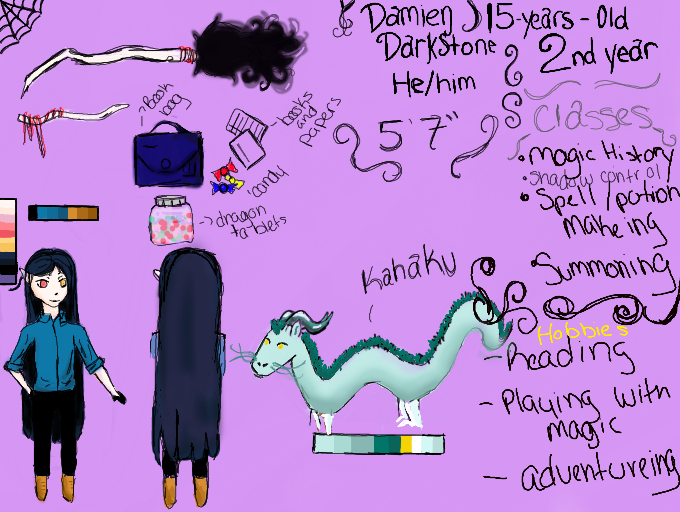 Damien
DarkStone
He/him
15-years-old
2nd year
5'7"
Classes
• Magic History
• Shadow control
• Spell/potion
Makeing
• Summoning
Hobbies
- Reading
- Playing with
magic
- adventureing
Book
bag
books
and
papers
candy
dragon
tablets
Kahaku